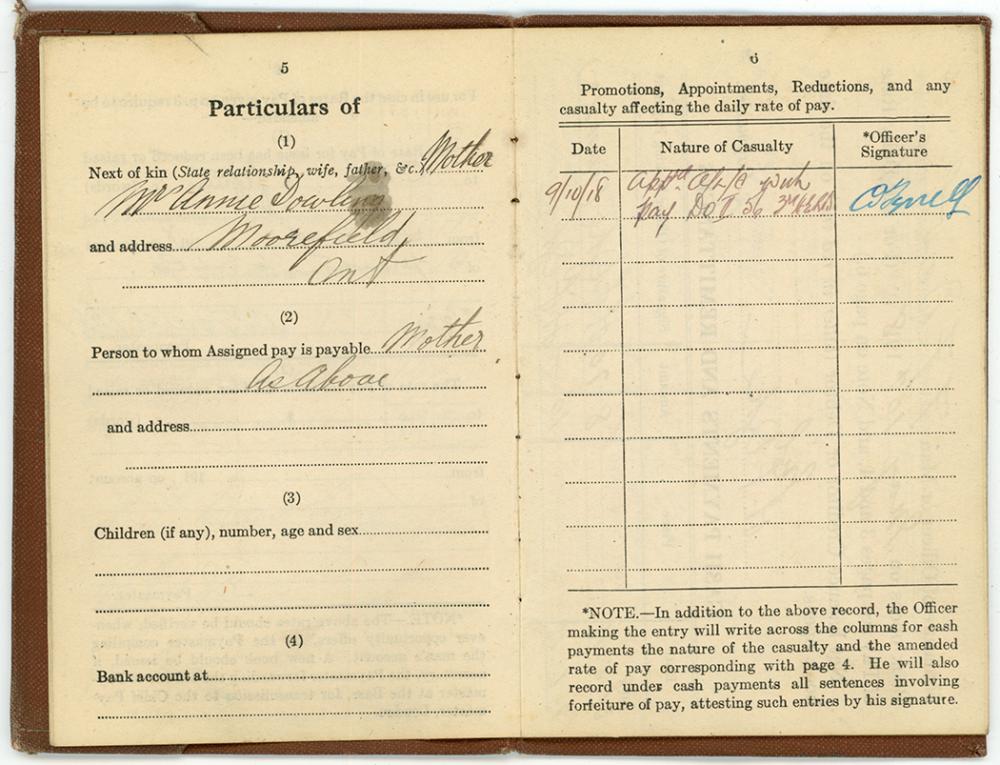 5
Particulars of
(1)
Next of kin (State relationship, wife, father, &c.) Mother
Mrs Annie Dowling
and address Moorefield,
Ont
(2)
Person to whom Assigned pay is payable Mother
As Above
and address
(3)
Children (if any), number, age and sex
(4)
Bank account at
6
Promotions, Appointments, Reductions, and any
casualty affecting the daily rate of pay.
Date
Nature of Casualty
*Officer's
Signature
9/10/18
App'd A/L/C with
Pay DO II 56 3rd
*NOTE.—In addition to the above record, the Officer
making the entry will write across the columns for cash
payments the nature of the casualty and the amended
rate of pay corresponding with page 4. He will also
record under cash payments all sentences involving
forfeiture of pay, attesting such entries by his signature.